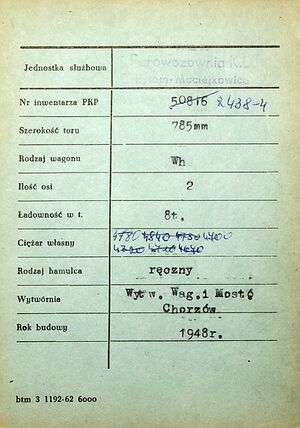 Parowozownia K.D.
Bytom-Maciejkowice
Jednostka służbowa
Nr inwentarza PKP 50816 2438-4
Szerokość toru 785mm
Rodzaj wagonu Wh
Ilość osi 2
Ładowność w t. 8t.
Ciężar własny 4780 4840 4750 4700
4720 4710 4670
Rodzaj hamulca ręczny
Wytwórnia Wytw. Wag.i Mostó
Chorzów
Rok budowy 1948r.
btm 3 1192-62 6000